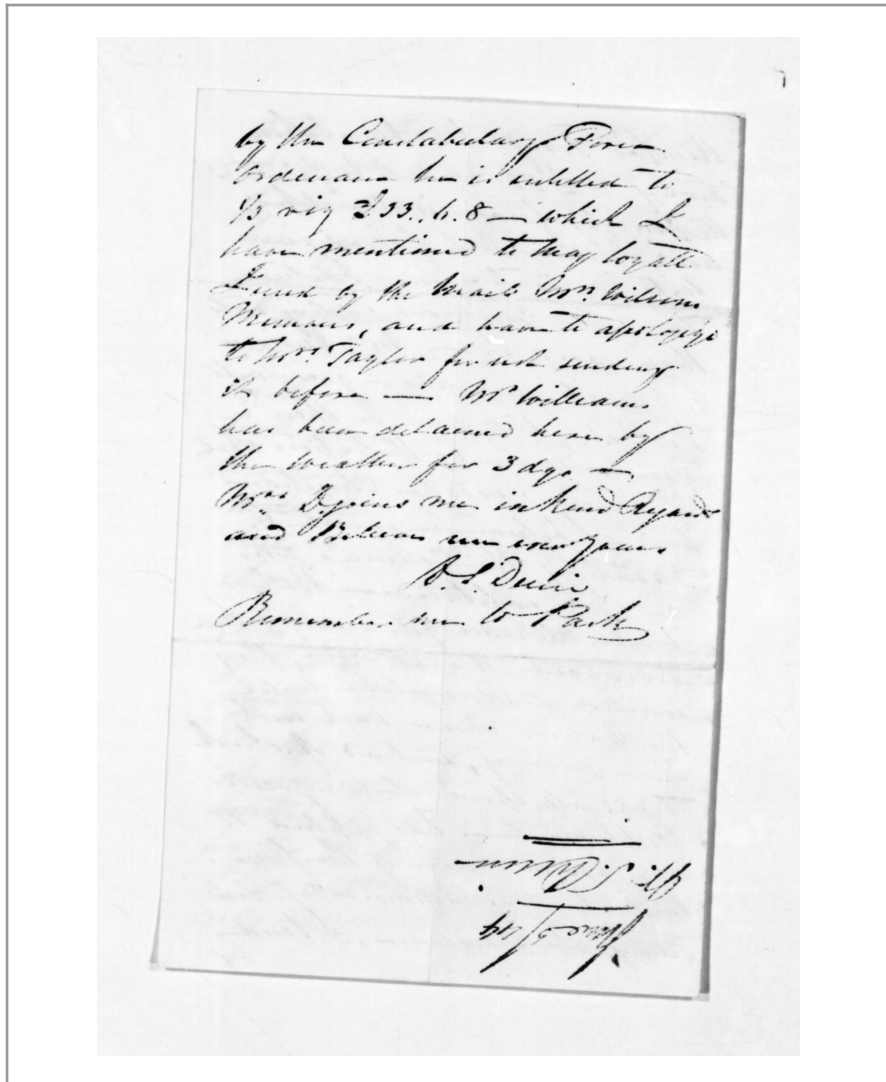 by the Constabulary Force
Ordinance he is entitled to
1/3 viz £33..6.8 — which I
have mentioned to Maj
I send by the Mail Mrs. Wilsons
Memoirs, and have to apologize
to Mrs. Taylor for not sending
it before — Mr Williams
has been detained here by
the weather for 3 dys —
Mrs D joins me in kind Regards
and Believe me ever yours
Remember me to Park